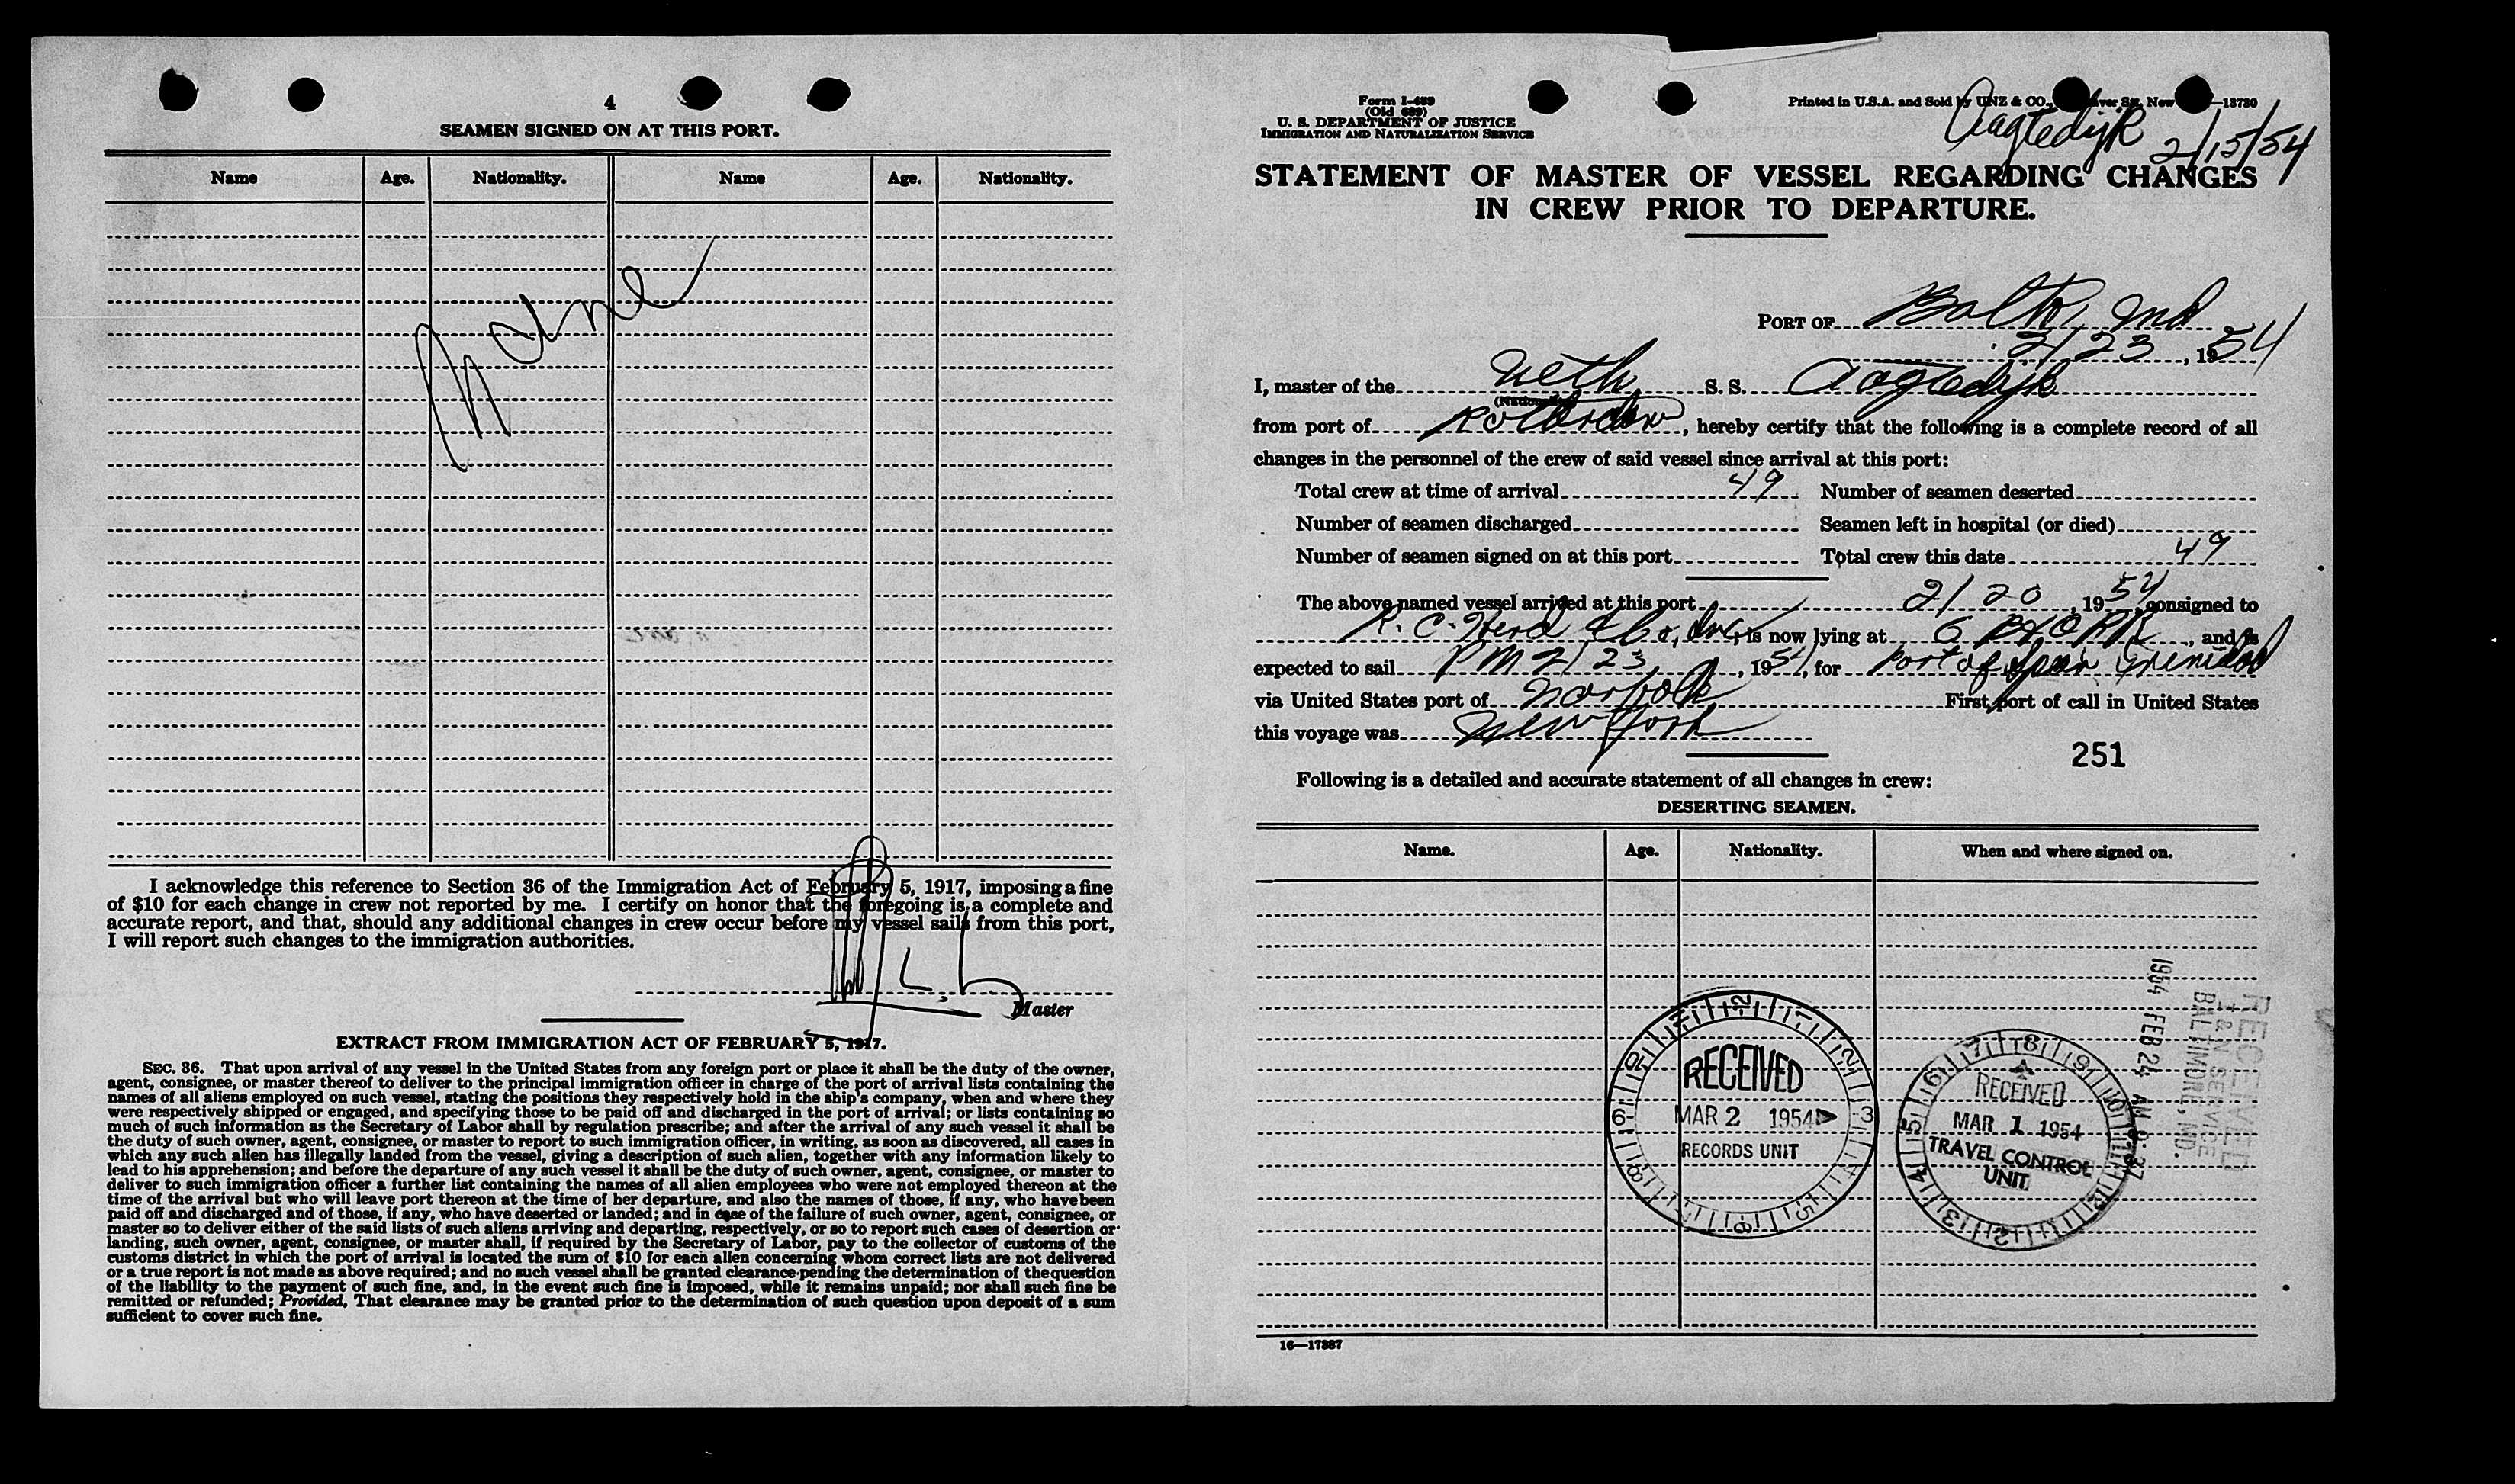 4
SEAMEN SIGNED ON AT THIS PORT.
Name Age. Nationality. Name Age. Nationality.
None
I acknowledge this reference to Section 36 of the Immigration Act of February 5, 1917, imposing a fine
of $10 for each change in crew not reported by me. I certify on honor that the foregoing is a complete and
accurate report, and that, should any additional changes in crew occur before my vessel sails from this port,
I will report such changes to the immigration authorities.
Master
EXTRACT FROM IMMIGRATION ACT OF FEBRUARY 5, 1917.
SEC. 36. That upon arrival of any vessel in the United States from any foreign port or place it shall be the duty of the owner,
agent, consignee, or master thereof to deliver to the principal immigration officer in charge of the port of arrival lists containing the
names of all aliens employed on such vessel, stating the positions they respectively hold in the ship's company, when and where they
were respectively shipped or engaged, and specifying those to be paid off and discharged in the port of arrival; or lists containing so
much of such information as the Secretary of Labor shall by regulation prescribe; and after the arrival of any such vessel it shall be
the duty of such owner, agent, consignee, or master to report to such immigration officer, in writing, as soon as discovered, all cases in
which any such alien has illegally landed from the vessel, giving a description of such alien, together with any information likely to
lead to his apprehension; and before the departure of any such vessel it shall be the duty of such owner, agent, consignee, or master to
deliver to such immigration officer a further list containing the names of all alien employees who were not employed thereon at the
time of the arrival but who will leave port thereon at the time of her departure, and also the names of those, if any, who have been
paid off and discharged and of those, if any, who have deserted or landed; and in case of the failure of such owner, agent, consignee, or
master so to deliver either of the said lists of such aliens arriving and departing, respectively, or so to report such cases of desertion or
landing, such owner, agent, consignee, or master shall, if required by the Secretary of Labor, pay to the collector of customs of the
customs district in which the port of arrival is located the sum of $10 for each alien concerning whom correct lists are not delivered
or a true report is not made as above required; and no such vessel shall be granted clearance pending the determination of the question
of the liability to the payment of such fine, and, in the event such fine is imposed, while it remains unpaid; nor shall such fine be
remitted or refunded; Provided, That clearance may be granted prior to the determination of such question upon deposit of a sum
sufficient to cover such fine.
Form I-489
(Old 689)
U. S. DEPARTMENT OF JUSTICE
IMMIGRATION AND NATURALIZATION SERVICE
Printed in U.S.A. and Sold by UNZ & CO., Str. New —13730
Aagtedijk 2/15/54
STATEMENT OF MASTER OF VESSEL REGARDING CHANGES
IN CREW PRIOR TO DEPARTURE.
PORT OF Balto, Md
2/23, 1954
I, master of the Neth S. S. Aagtedijk
from port of Rotterdam, hereby certify that the following is a complete record of all
changes in the personnel of the crew of said vessel since arrival at this port:
Total crew at time of arrival 49 Number of seamen deserted
Number of seamen discharged Seamen left in hospital (or died)
Number of seamen signed on at this port Total crew this date 49
The above named vessel arrived at this port 2/20, 1954, consigned to
R. C. Herd & Co, Inc, is now lying at 6 B&O RR, and is
expected to sail PM 2/23, 1954, for Port of Spain Trinidad
via United States port of Norfolk First port of call in United States
this voyage was New York
251
Following is a detailed and accurate statement of all changes in crew:
DESERTING SEAMEN.
Name. Age. Nationality. When and where signed on.
RECEIVED
MAR 2 1954
RECORDS UNIT
RECEIVED
MAR 1 1954
TRAVEL CONTROL
UNIT
RECEIVED
I & N SERVICE
BALTIMORE, MD.
1954 FEB 24 AM
16—17387